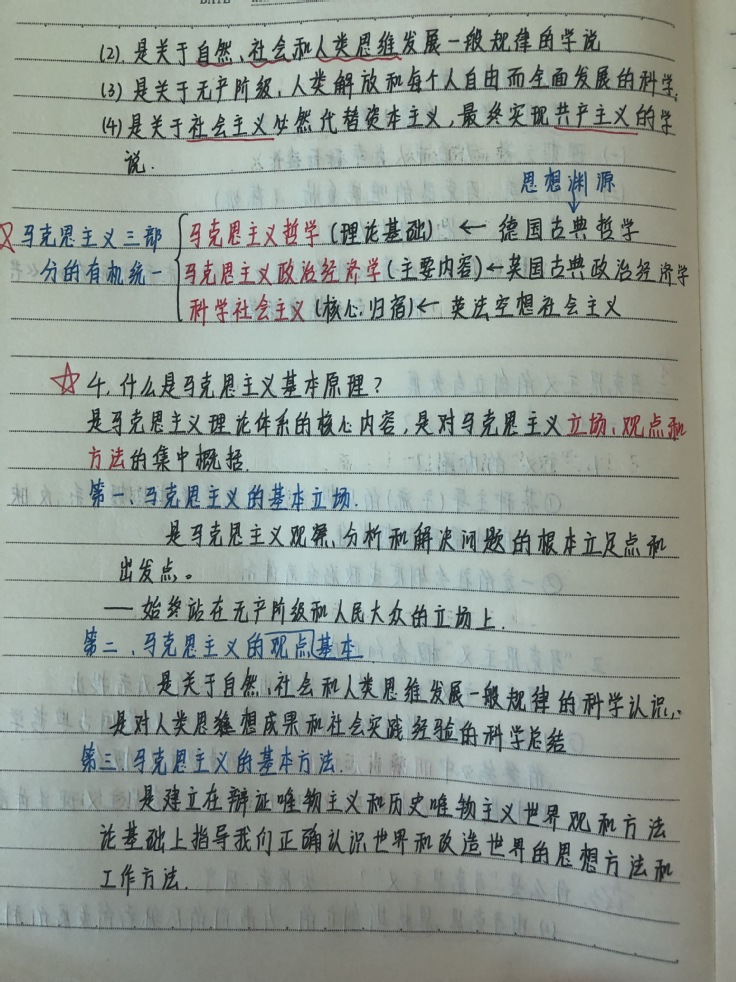 DATE
(2). 是关于自然、社会和人类思维发展一般规律的学说
(3) 是关于无产阶级、人类解放和每个人自由而全面发展的科学.
(4) 是关于社会主义必然代替资本主义,最终实现共产主义的学
说.
思想渊源
马克思主义三部
分的有机统一
马克思主义哲学(理论基础) ← 德国古典哲学
马克思主义政治经济学(主要内容)←英国古典政治经济学
科学社会主义(核心.归宿)← 英法空想社会主义
☆ 4. 什么是马克思主义基本原理?
是马克思主义理论体系的核心内容,是对马克思主义立场、观点和
方法的集中概括.
第一、马克思主义的基本立场.
是马克思主义观察、分析和解决问题的根本立足点和
出发点。
—— 始终站在无产阶级和人民大众的立场上.
第二、马克思主义的观点基本
是关于自然、社会和人类思维发展一般规律的科学认识,
是对人类思想成果和社会实践经验的科学总结
第三.马克思主义的基本方法.
是建立在辩证唯物主义和历史唯物主义世界观和方法
论基础上指导我们正确认识世界和改造世界的思想方法和
工作方法.